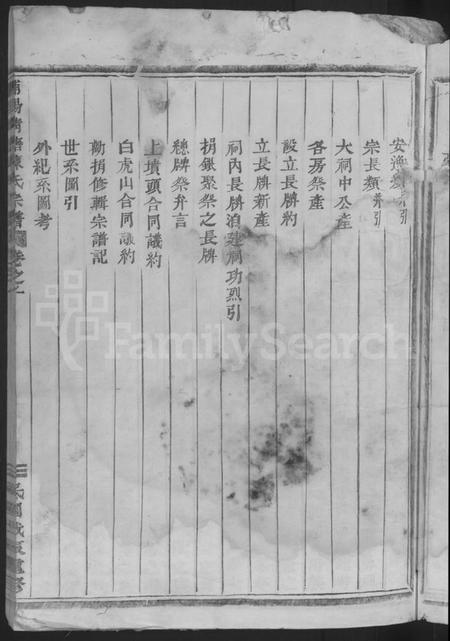 安漁類引
宗長類引
大祠中公產
各房祭產
設立長牌約
立長牌新產
祠內長牌泊建祠功烈引
捐銀聚祭之長牌
穗牌祭弁言
上墳頭合同議約
白虎山合同議約
勸捐修輯宗譜記
世系圖引
外紀系圖考
陳氏宗譜卷之
民國重修
FamilySearch